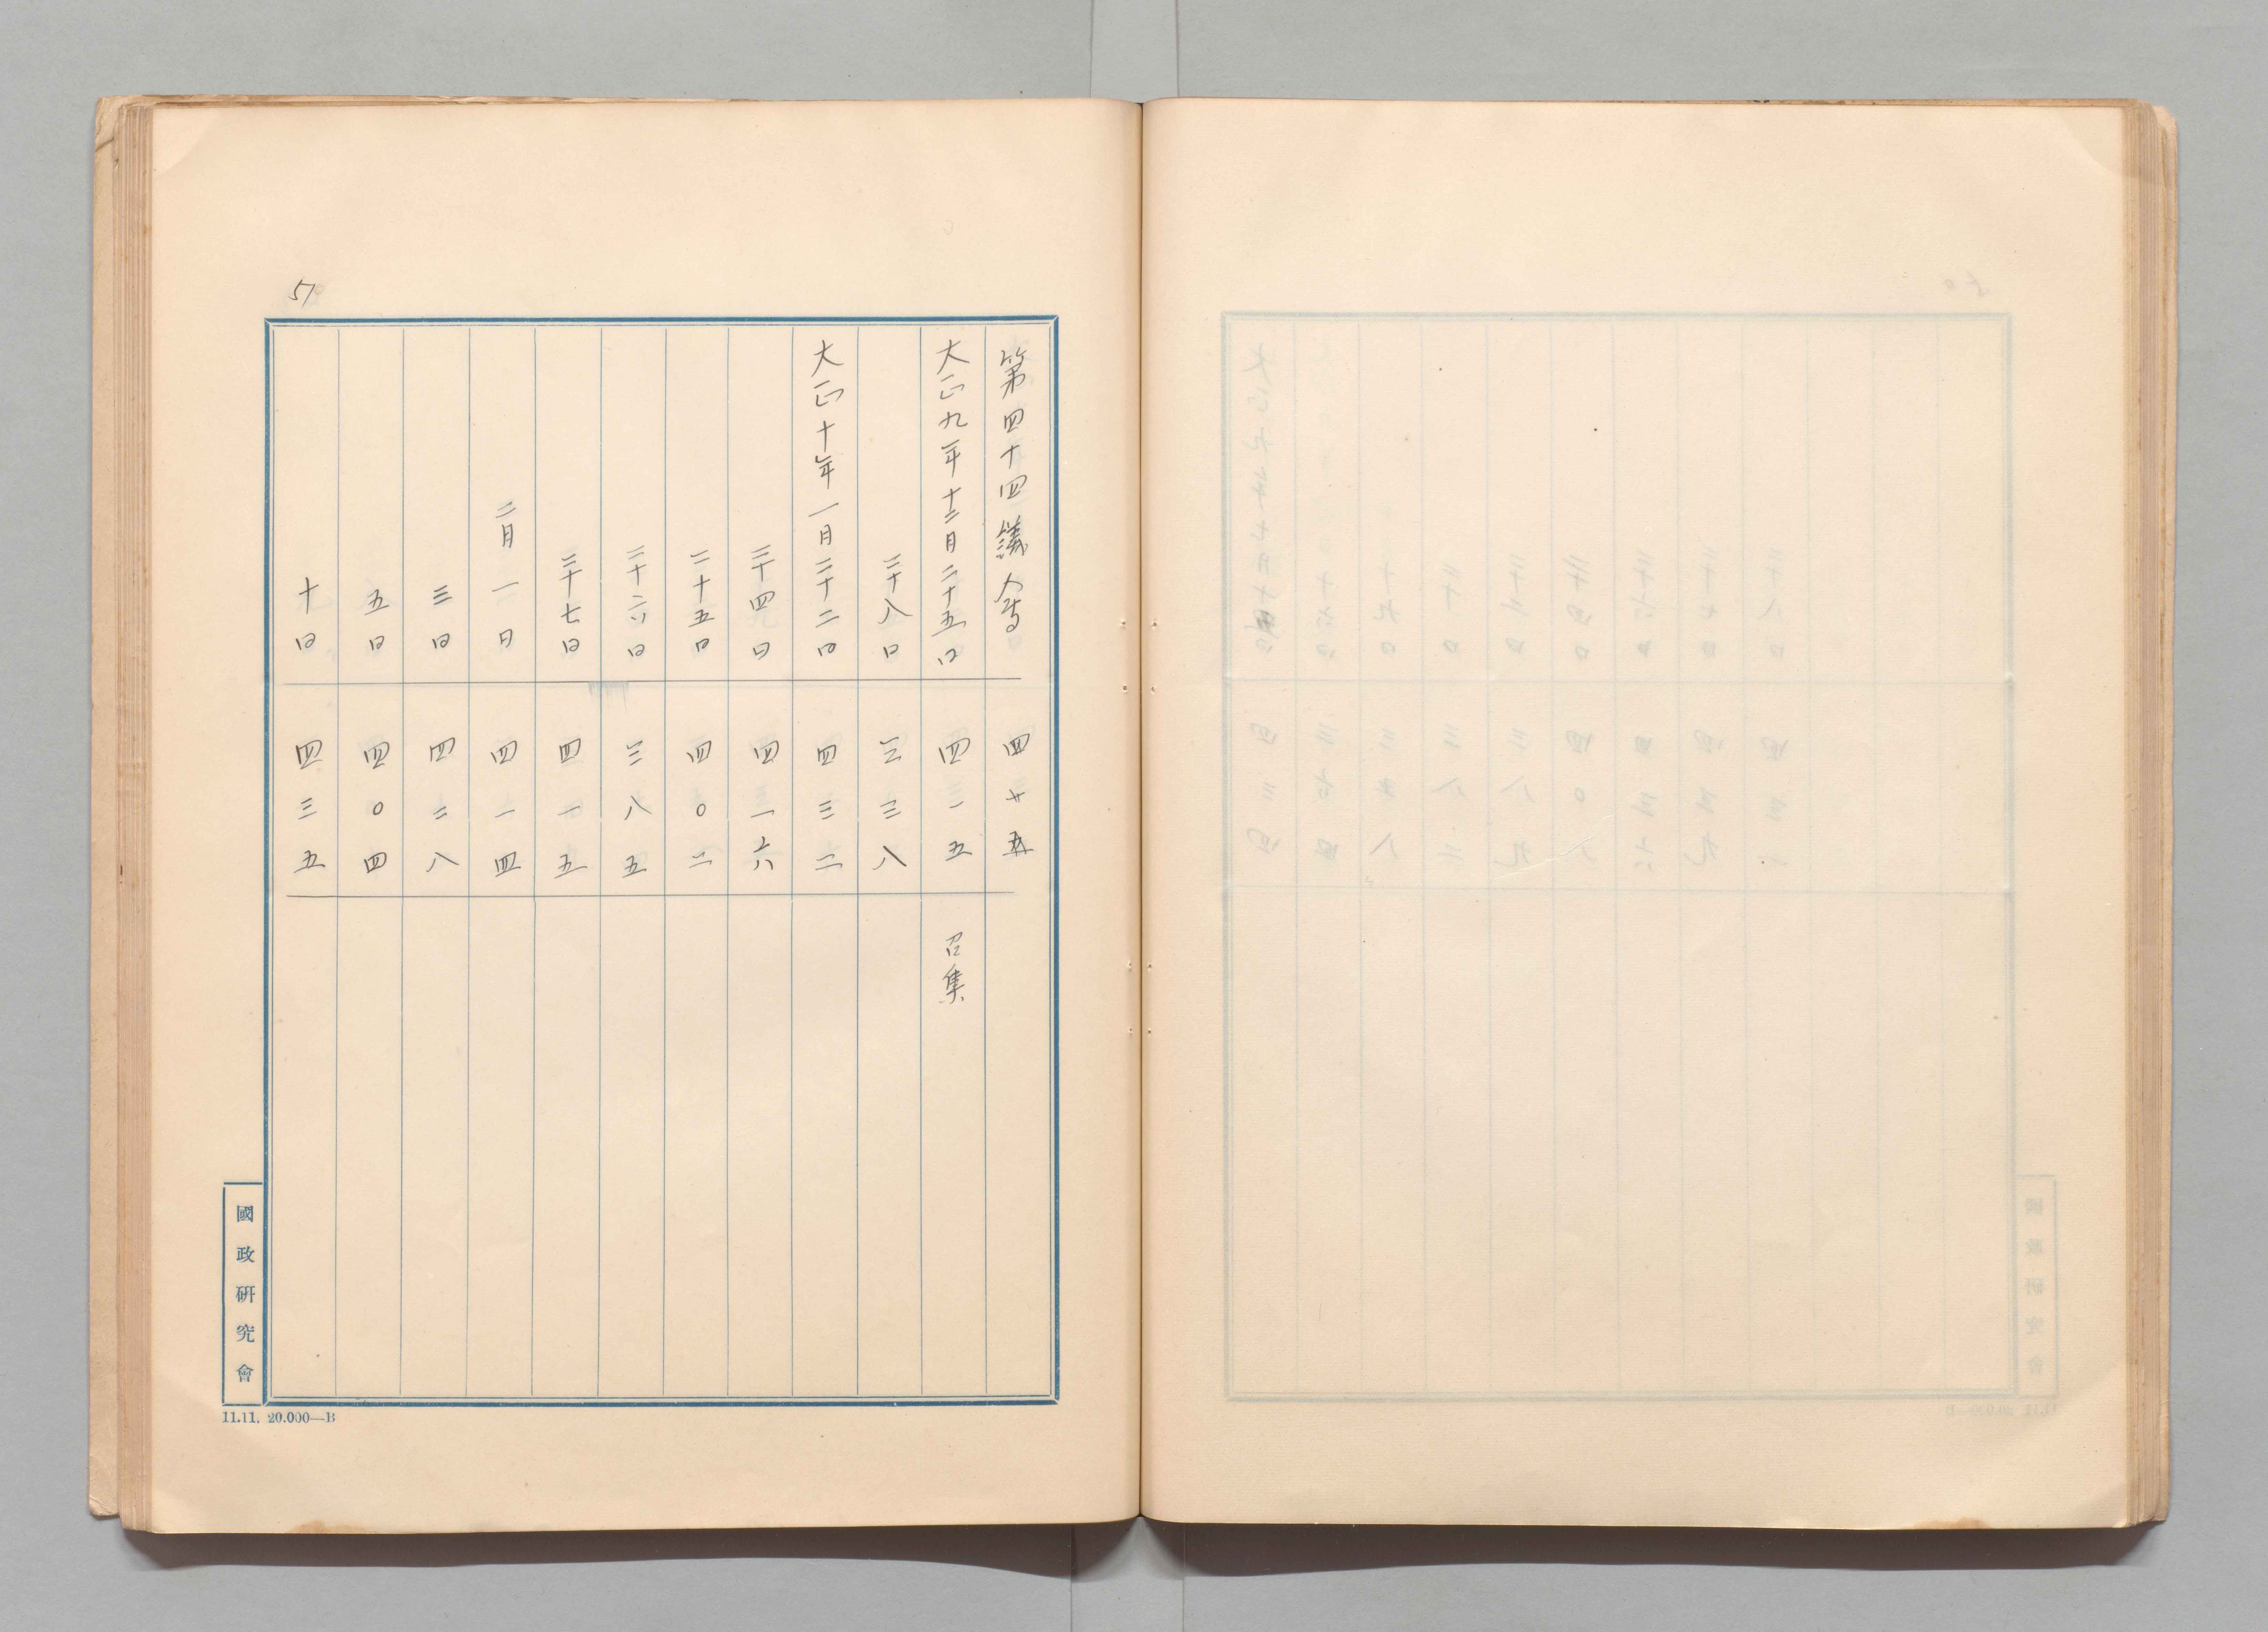 51
第四十四議會 四十五
大正九年十二月二十五日 四一五 召集
二十八日 三三八
大正十年一月二十二日 四三二
二十四日 四一六
二十五日 四〇二
二十六日 三八五
二十七日 四一五
二月一日 四一四
三日 四二八
五日 四〇四
十日 四三五
國政研究會
11.11. 20.000—B